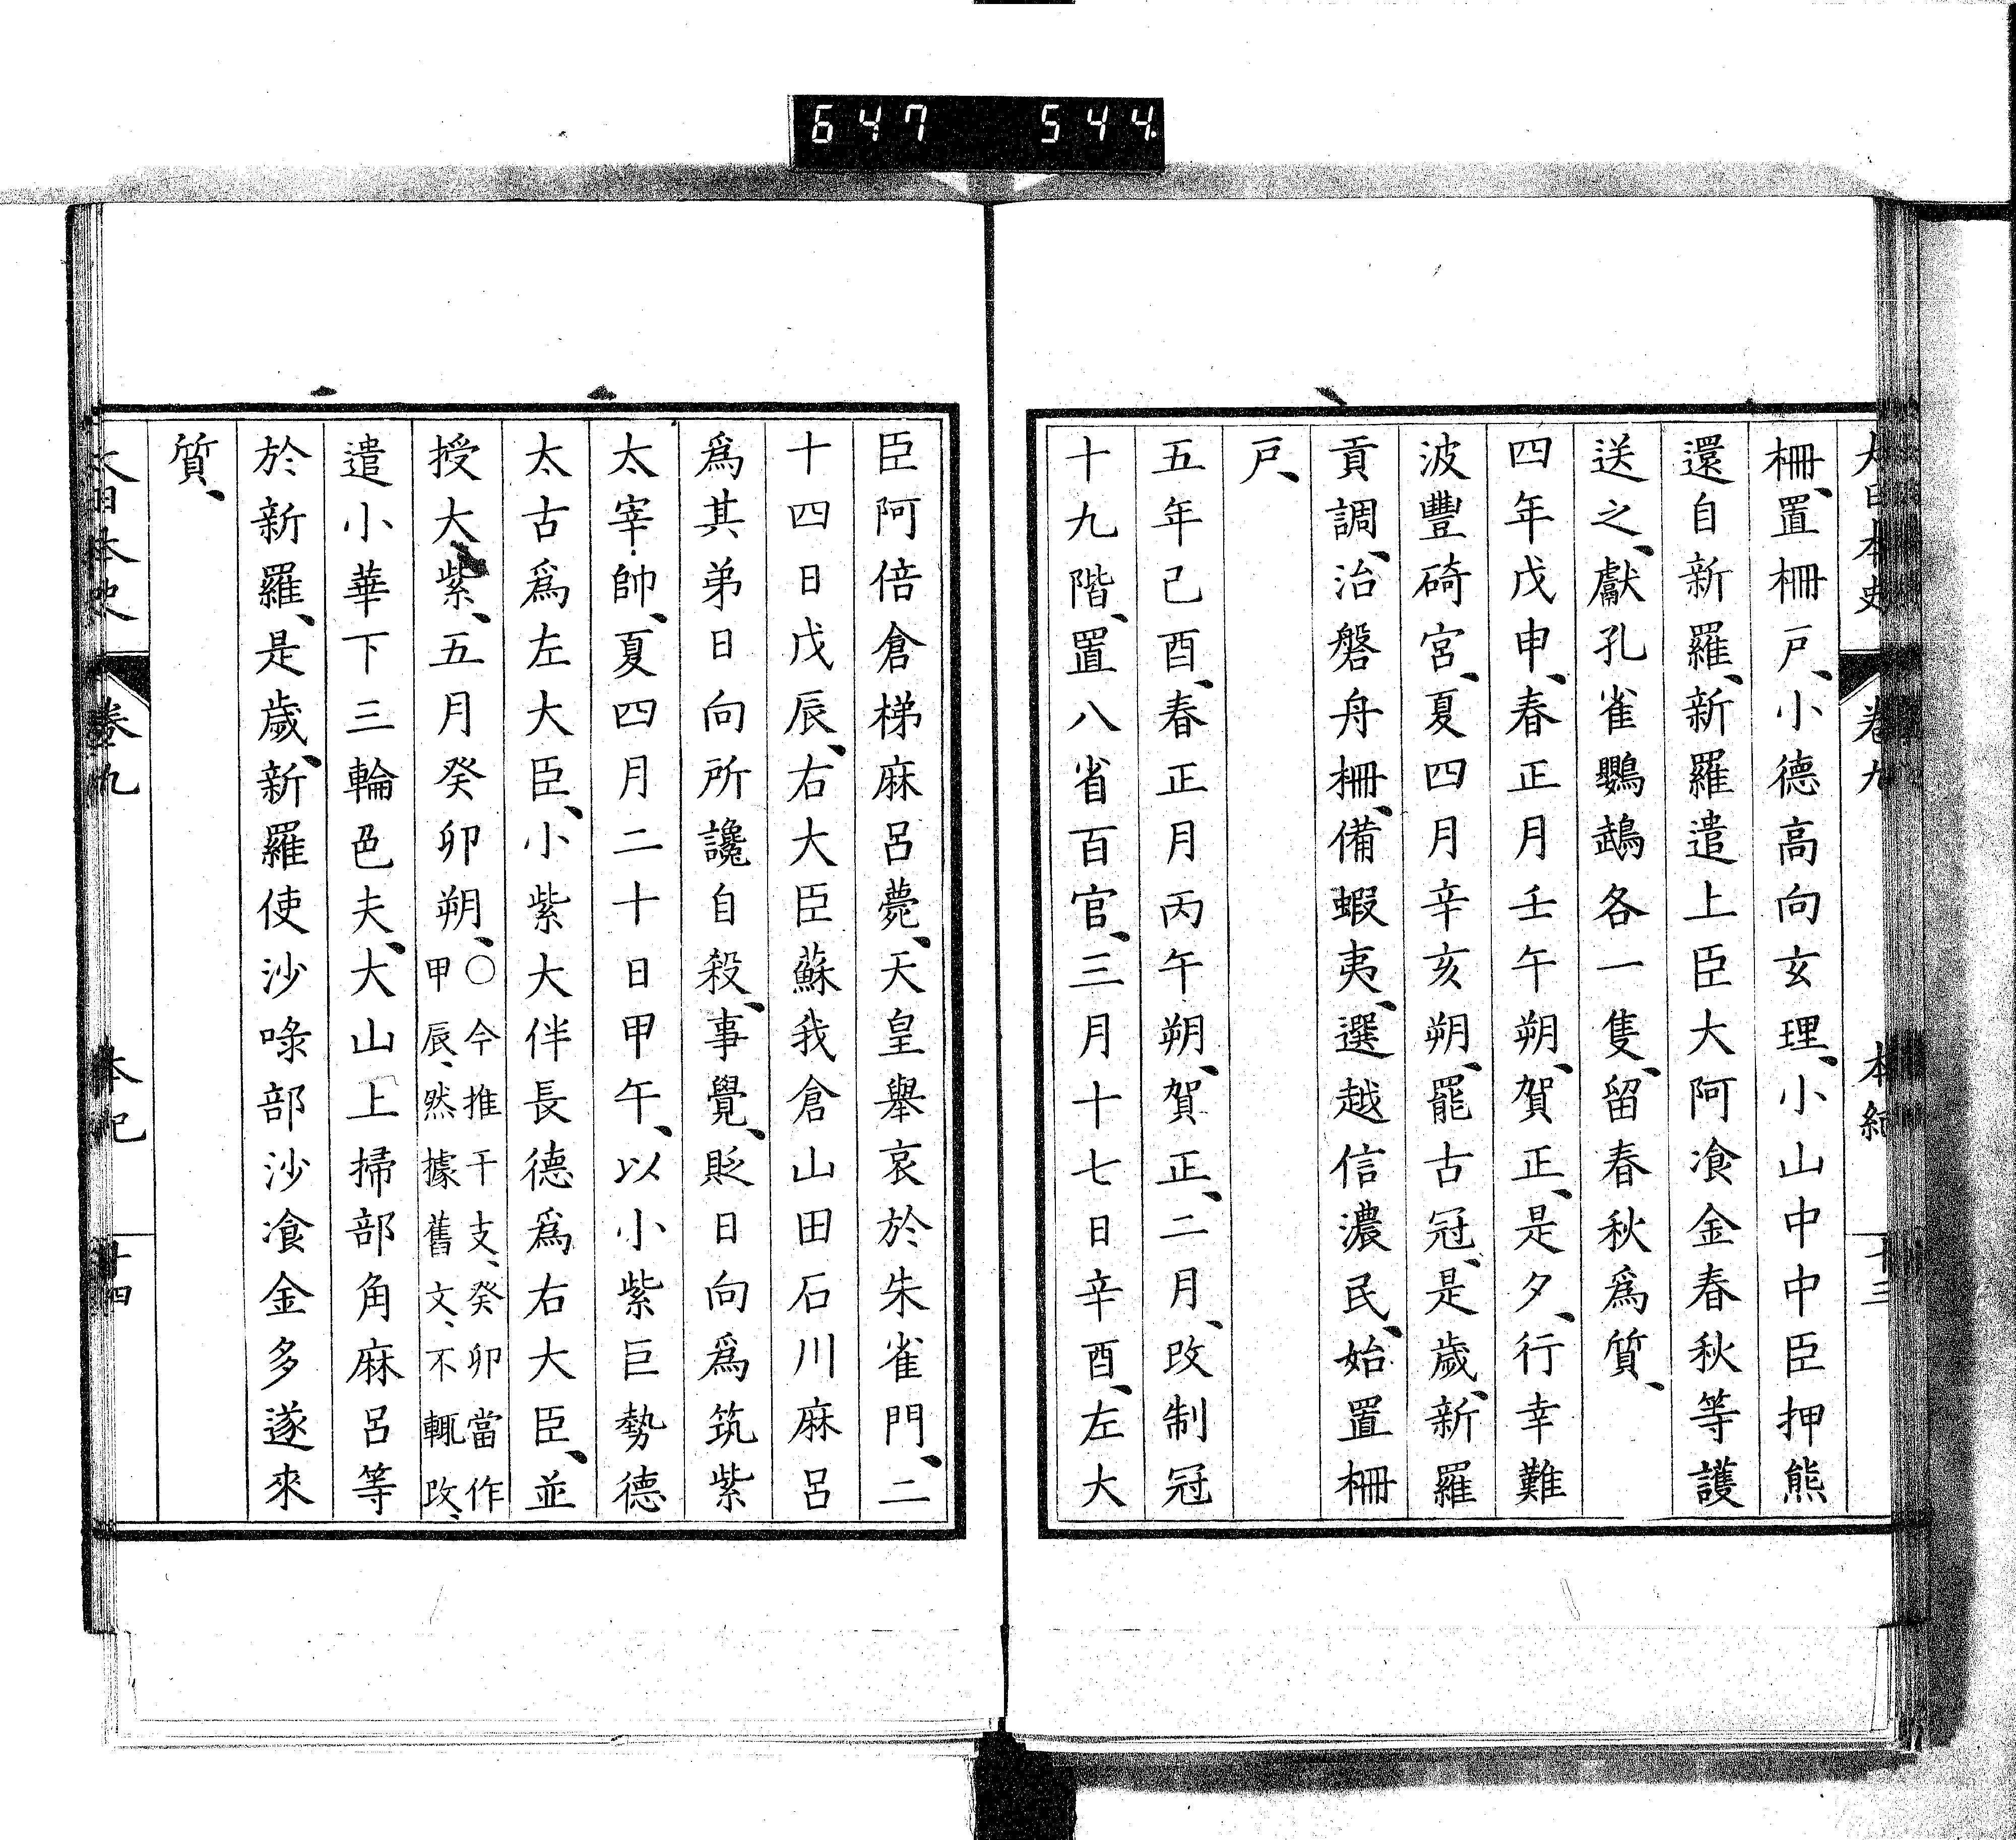 647 544
大日本史 卷九 本紀 十三
柵、置柵戸、小德高向玄理、小山中中臣押熊
還自新羅、新羅遣上臣大阿飡金春秋等護
送之、獻孔雀鸚鵡各一隻、留春秋爲質、
四年戊申、春正月壬午朔、賀正、是夕、行幸難
波豐碕宮、夏四月辛亥朔、罷古冠、是歲、新羅
貢調、治磐舟柵、備蝦夷、選越信濃民、始置柵
戸、
五年己酉、春正月丙午朔、賀正、二月、改制冠
十九階、置八省百官、三月十七日辛酉、左大
臣阿倍倉梯麻呂薨、天皇舉哀於朱雀門、二
十四日戊辰、右大臣蘇我倉山田石川麻呂
爲其弟日向所讒自殺、事覺、貶日向爲筑紫
太宰帥、夏四月二十日甲午、以小紫巨勢德
太古爲左大臣、小紫大伴長德爲右大臣、並
授大紫、五月癸卯朔、〇今推干支、癸卯當作甲辰、然據舊文、不輒改、
遣小華下三輪色夫、大山上掃部角麻呂等
於新羅、是歲、新羅使沙喙部沙飡金多遂來
質、
大日本史 卷九 本紀 十四